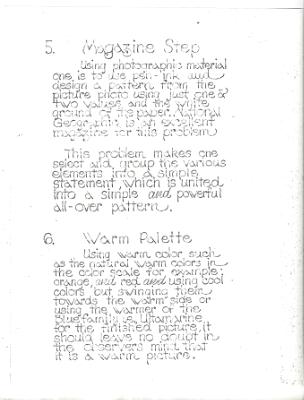 5. Magazine Step
Using photographic material
one is to use pen-ink and
design a pattern from the
picture photo using just one or
two values and the white
ground of the paper. National
Geographic is an excellent
magazine for this problem
This problem makes one
select and group the various
elements into a simple
statement, which is united
into a simple and powerful
all-over pattern.
6. Warm Palette
Using warm color, such
as the natural warm colors in
the color scale for example;
orange, and red and using cool
colors but swinging them
towards the warm side or
using the warmer of the
blue family ie. Ultamarine
for the finished picture, it
should leave no doubt in
the observers mind that
it is a warm picture.